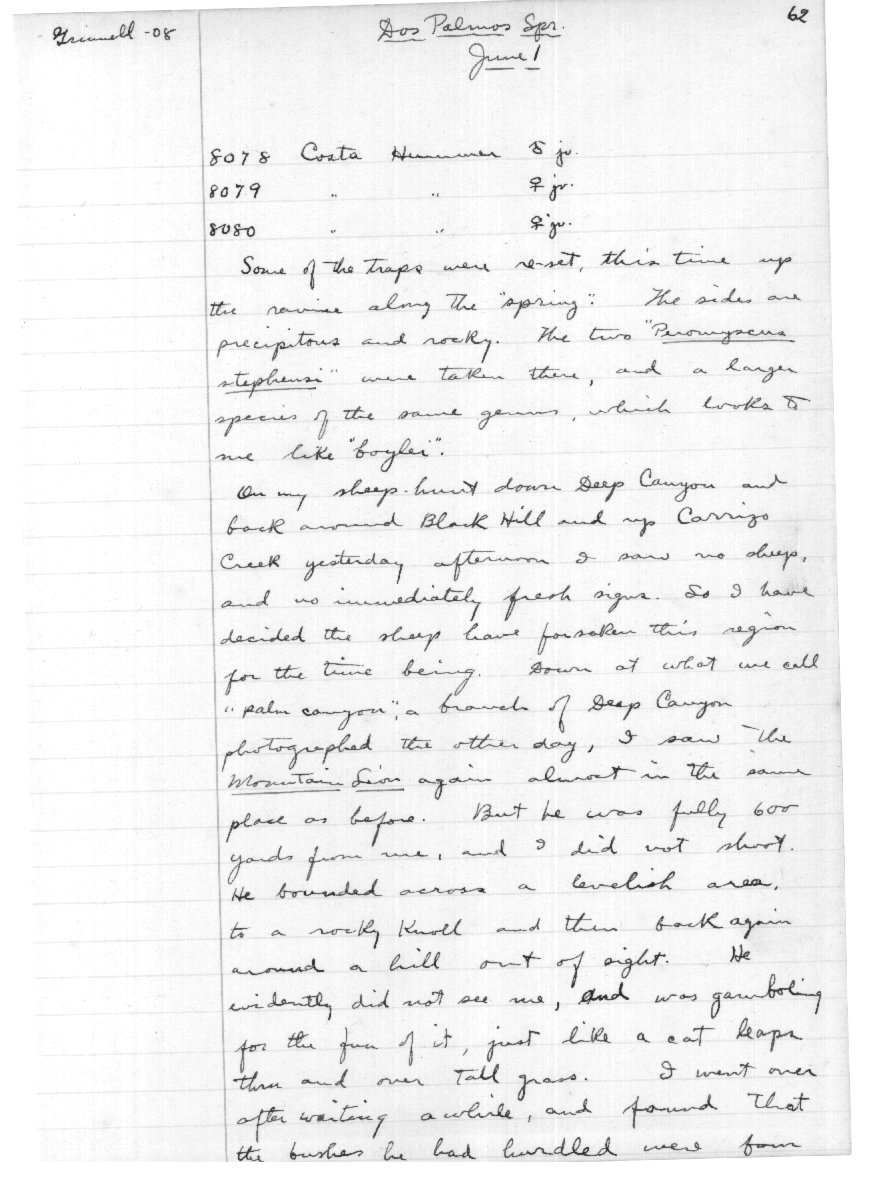 Grinnell -08
Dos Palmos Spr.
62
June 1
8078 Costa Hummer ♂ jv.
8079 " " ♀ jv.
8080 " " ♀ jv.
Some of the traps were re-set, this time up
the ravine along the "spring". The sides are
precipitous and rocky. The two "Peromyscus
stephensi" were taken there, and a larger
species of the same genus, which looks to
me like "boylei".
On my sheep-hunt down Deep Canyon and
back around Black Hill and up Carrizo
Creek yesterday afternoon I saw no sheep,
and no immediately fresh signs. So I have
decided the sheep have forsaken this region
for the time being. Down at what we call
"palm canyon", a branch of Deep Canyon
photographed the other day, I saw the
Mountain Lion again almost in the same
place as before. But he was fully 600
yards from me, and I did not shoot.
He bounded across a levelish area,
to a rocky knoll and then back again
around a hill out of sight. He
evidently did not see me, and was gamboling
for the fun of it, just like a cat leaps
thru and over tall grass. I went over
after waiting awhile, and found that
the bushes he had hurdled were from